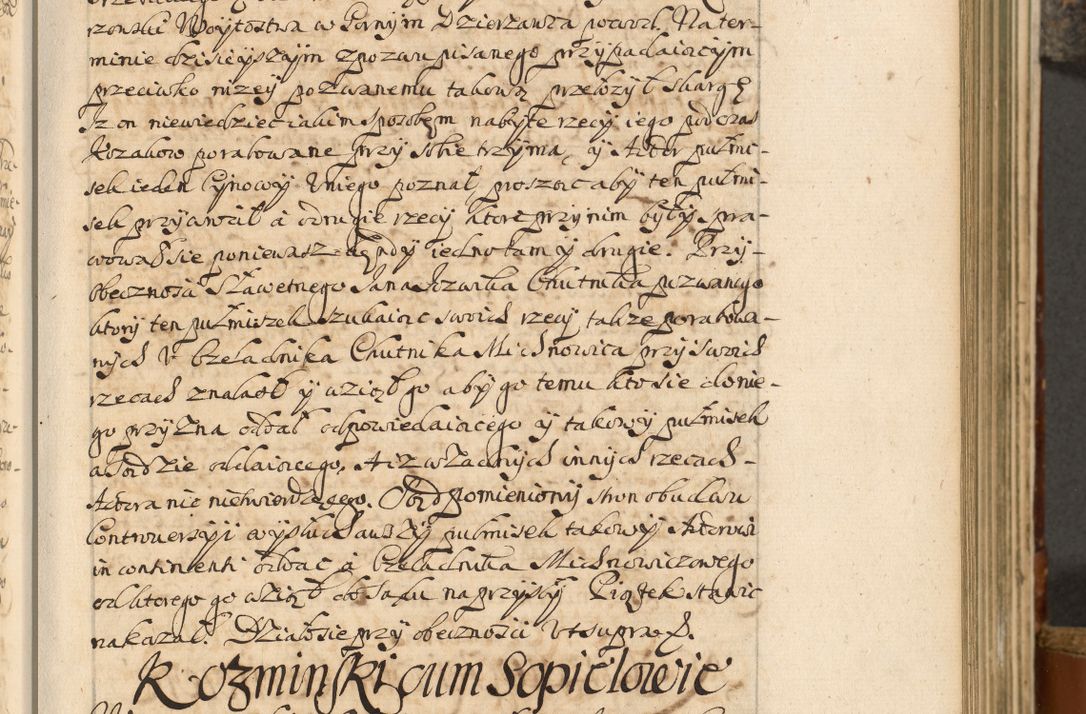 rzonsku Woytostwa w Gornym Dzierzawca pozwoł. Na ter-
minie dzisieyszym z pozwu pisanego przypadaiącym
przeciwko nizey pozwanemu takową przełozył skargę
Iz on niewiedziec iakim sposobem nabyte rzecy iego podczas
Kozakow porabowane przy sobie trzyma, y Aktor pułmi-
sek ieden Cynowy U niego poznał, prosząc aby ten pułmi-
sek przywrocił a o drugie rzecy ktore przy nim były spra-
wował sie poniewasz gdy iedno tam y drugie. Przy-
obecznosci Sławetnego Jana Chutnika pozwanego
ktory ten pułmisek szukaiąc swoich rzecy takze porabowa-
nych V Czeladnika Chutnika Michnowica przy swoich
rzecach znalazł y wziął go aby go temu kto sie do nie-
go przyzna oddał odpowiedaiącego y takowy pułmisek
a Sodzie oddaiącego, A iz w zadnych innych rzecach-
Aktora nic nietwierdzącego. Sąd pomieniony stron obudwu
Controversyi wysłuchawszy pułmisek takowy Aktorowi
in continenti oddac a Czeladnika Michnowiczowego
od ktorego go wziął do Sądu na przyszły Piątek stawic
nakazał. Działo sie przy obecznosci vt supra.
Kozminski cum Sopielowie